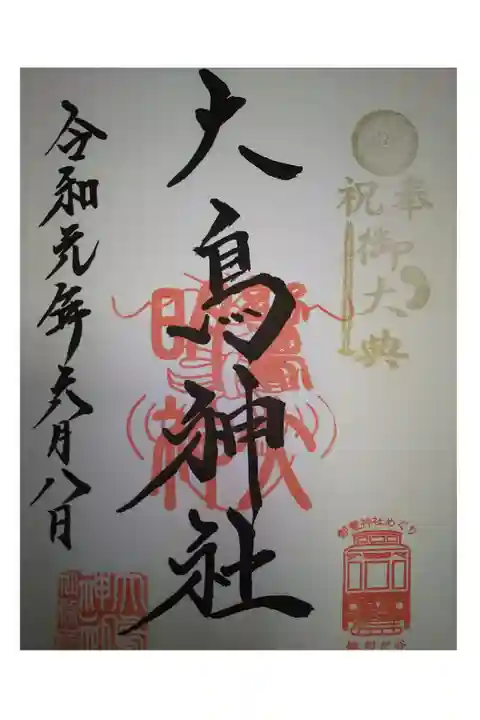 奉
祝
御大典
大鳥神社
令和元年六月八日
都電神社めぐり